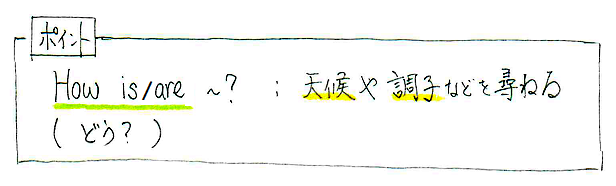 ポイント
How is/are ~? : 天候や調子などを尋ねる
( どう? )